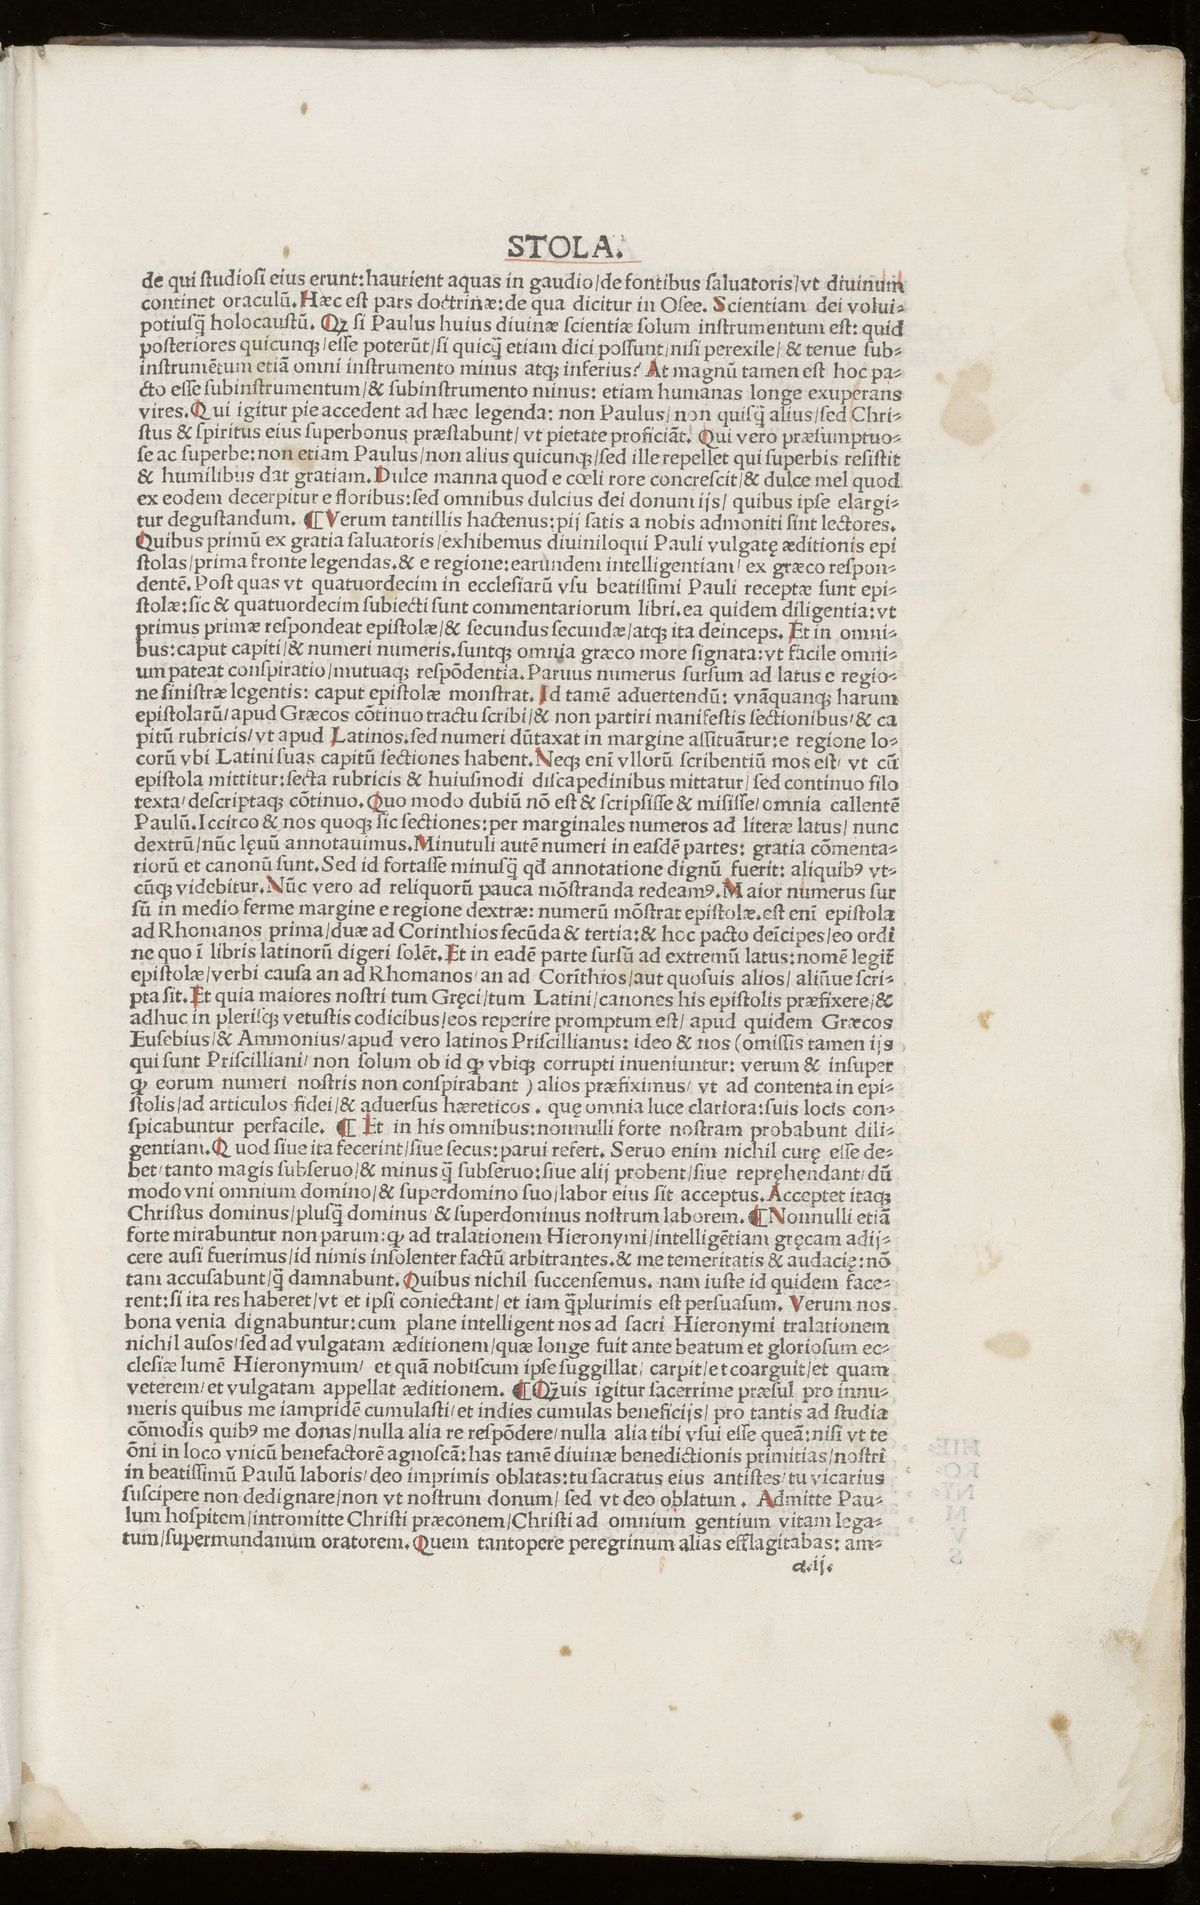 STOLA.
de qui ſtudioſi eius erunt:haurient aquas in gaudio/de fontibus ſaluatoris/vt diuinum
continet oraculū. Hæc eſt pars doctrinæ:de qua dicitur in Oſee. Scientiam dei volui⸗
potiuſq̄ holocauſtū. Qꝫ ſi Paulus huius diuinæ ſcientiæ ſolum inſtrumentum eſt: quid
poſteriores quicunqꝫ/eſſe poterūt/ſi quicq̄ etiam dici poſſunt/niſi perexile/ & tenue ſub⸗
inſtrumētum etiā omni inſtrumento minus atqꝫ inferius? At magnū tamen eſt hoc pa⸗
cto eſſe ſubinſtrumentum/& ſubinſtrumento minus: etiam humanas longe exuperans
vires. Qui igitur pie accedent ad hæc legenda: non Paulus/ non quiſq̄ alius/ſed Chri⸗
ſtus & ſpiritus eius ſuperbonus præſtabunt/ vt pietate proficiāt. Qui vero præſumptuo⸗
ſe ac ſuperbe:non etiam Paulus/non alius quicunqꝫ/ſed ille repellet qui ſuperbis reſiſtit
& humilibus dat gratiam. Dulce manna quod e cœli rore concreſcit/& dulce mel quod
ex eodem decerpitur e floribus:ſed omnibus dulcius dei donum ijs/ quibus ipſe elargi⸗
tur deguſtandum. ¶ Verum tantillis hactenus:pij ſatis a nobis admoniti ſint lectores.
Quibus primū ex gratia ſaluatoris/exhibemus diuiniloqui Pauli vulgatę æditionis epi
ſtolas/prima fronte legendas.& e regione:earundem intelligentiam/ ex græco reſpon⸗
dentē. Poſt quas vt quatuordecim in eccleſiarū vſu beatiſſimi Pauli receptæ ſunt epi⸗
ſtolæ:ſic & quatuordecim ſubiecti ſunt commentariorum libri.ea quidem diligentia:vt
primus primæ reſpondeat epiſtolæ/& ſecundus ſecundæ/atqꝫ ita deinceps. Et in omni⸗
bus:caput capiti/& numeri numeris.ſuntqꝫ omnia græco more ſignata:vt facile omni⸗
um pateat conſpiratio/mutuaqꝫ reſpōdentia. Paruus numerus ſurſum ad latus e regio⸗
ne ſiniſtræ legentis: caput epiſtolæ monſtrat. Id tamē aduertendū: vnāquanqꝫ harum
epiſtolarū/apud Græcos cōtinuo tractu ſcribi/& non partiri manifeſtis ſectionibus/& ca
pitū rubricis/vt apud Latinos.ſed numeri dūtaxat in margine aſſituātur:e regione lo⸗
corū vbi Latini ſuas capitū ſectiones habent. Neqꝫ eni̅ vllorū ſcribentiū mos eſt/ vt cū
epiſtola mittitur:ſecta rubricis & huiuſmodi diſcapedinibus mittatur/ſed continuo filo
texta/deſcriptaqꝫ cōtinuo. Quo modo dubiū nō eſt & ſcripſiſſe & miſiſſe/omnia callentē
Paulū. Iccirco & nos quoqꝫ ſic ſectiones:per marginales numeros ad literæ latus/ nunc
dextrū/nūc lęuū annotauimus. Minutuli autē numeri in eaſdē partes: gratia cōmenta⸗
riorū et canonū ſunt. Sed id fortaſſe minuſq̄ qđ annotatione dignū fuerit: aliquibꝰ vt⸗
cūqꝫ videbitur. Nūc vero ad reliquorū pauca mōſtranda redeamꝰ. Maior numerus ſur
ſū in medio ferme margine e regione dextræ: numerū mōſtrat epiſtolæ.eſt eni̅ epiſtola
ad Rhomanos prima/duæ ad Corinthios ſecūda & tertia:& hoc pacto dei̅cipes/eo ordi
ne quo i̅ libris latinorū digeri ſolēt. Et in eadē parte ſurſū ad extremū latus:nomē legit̅
epiſtolæ/verbi cauſa an ad Rhomanos/an ad Cori̅thios/aut quoſuis alios/ alin̄ue ſcri⸗
pta ſit. Et quia maiores noſtri tum Gręci/tum Latini/canones his epiſtolis præfixere/&
adhuc in pleriſqꝫ vetuſtis codicibus/eos reperire promptum eſt/ apud quidem Græcos
Euſebius/& Ammonius/apud vero latinos Priſcillianus: ideo & nos (omiſſis tamen ijs
qui ſunt Priſcilliani/ non ſolum ob id ꝙ vbiqꝫ corrupti inueniuntur: verum & inſuper
ꝙ eorum numeri noſtris non conſpirabant ) alios præfiximus/ vt ad contenta in epi⸗
ſtolis/ad articulos fidei/& aduerſus hæreticos . quę omnia luce clariora:ſuis locis con⸗
ſpicabuntur perfacile. ¶ Et in his omnibus:nonnulli forte noſtram probabunt dili⸗
gentiam. Quod ſiue ita fecerint/ſiue ſecus:parui refert. Seruo enim nichil curę eſſe de⸗
bet/tanto magis ſubſeruo/& minus q̄ ſubſeruo:ſiue alij probent/ſiue repręhendant/dū
modo vni omnium domino/& ſuperdomino ſuo/labor eius ſit acceptus. Acceptet itaqꝫ
Chriſtus dominus/pluſq̄ dominus & ſuperdominus noſtrum laborem. ¶ Nonnulli etiā
forte mirabuntur non parum:ꝙ ad tralationem Hieronymi/intelligētiam gręcam adij⸗
cere auſi fuerimus/id nimis inſolenter factū arbitrantes.& me temeritatis & audacię:nō
tam accuſabunt/q̄ damnabunt. Quibus nichil ſuccenſemus. nam iuſte id quidem face⸗
rent:ſi ita res haberet/vt et ipſi coniectant/ et iam q̄plurimis eſt perſuaſum. Verum nos
bona venia dignabuntur:cum plane intelligent nos ad ſacri Hieronymi tralationem
nichil auſos/ſed ad vulgatam æditionem/quæ longe fuit ante beatum et glorioſum ec⸗
cleſiæ lumē Hieronymum/ et quā nobiſcum ipſe ſuggillat/ carpit/et coarguit/et quam
veterem/et vulgatam appellat æditionem. ¶ Qꝫuis igitur ſacerrime præſul pro innu⸗
meris quibus me iampridē cumulaſti/et indies cumulas beneficijs/ pro tantis ad ſtudia
cōmodis quibꝰ me donas/nulla alia re reſpōdere/nulla alia tibi vſui eſſe queā:niſi vt te
ōni in loco vnicū benefactorē agnoſcā:has tamē diuinæ benedictionis primitias/noſtri
in beatiſſimū Paulū laboris/deo imprimis oblatas:tu ſacratus eius antiſtes/tu vicarius
ſuſcipere non dedignare/non vt noſtrum donum/ ſed vt deo oblatum . Admitte Pau⸗
lum hoſpitem/intromitte Chriſti præconem/Chriſti ad omnium gentium vitam lega⸗
tum/ſupermundanum oratorem. Quem tantopere peregrinum alias efflagitabas: am⸗
a.ij.